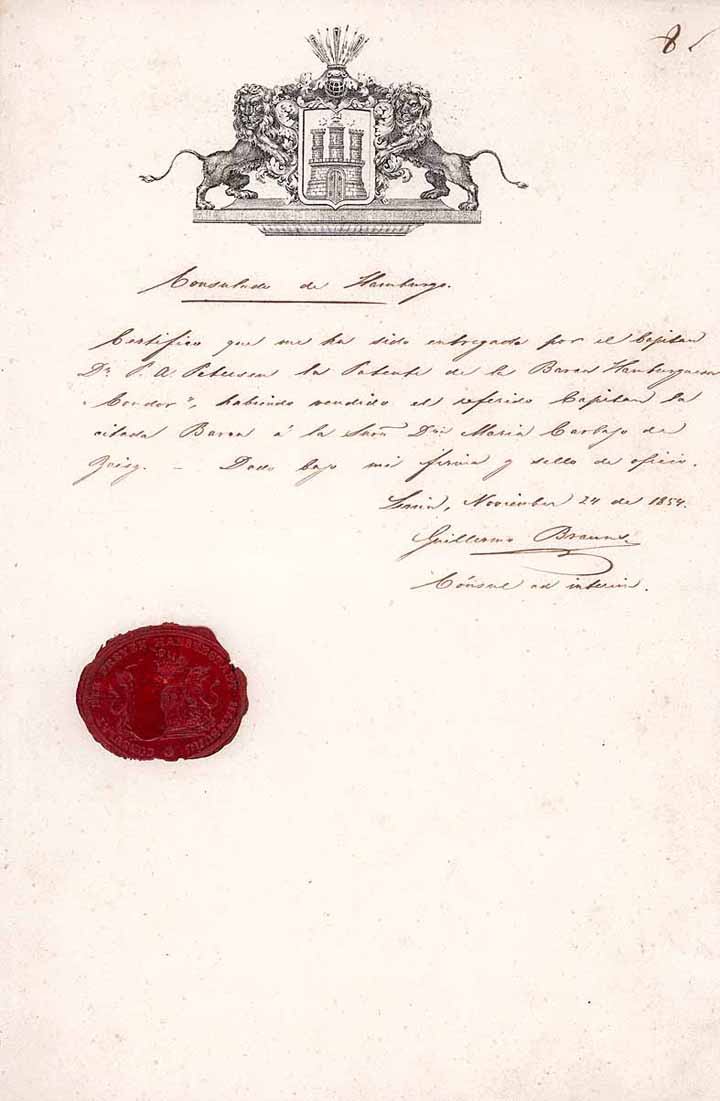 8
Consulado de Hamburgo.
Certifico que me ha sido entregada por el Capitan
Dn. P. A. Petersen la Patente de la Barca Hamburguesa
"Condor", habiendo vendido el referido Capitan la
citada Barca á la Sra. Dña. Maria Carbajo de
Dado bajo mi firma y sello de oficio.
Lima, Noviember 24 de 1854.
Guillermo Brauns.
Cónsul ad interim.